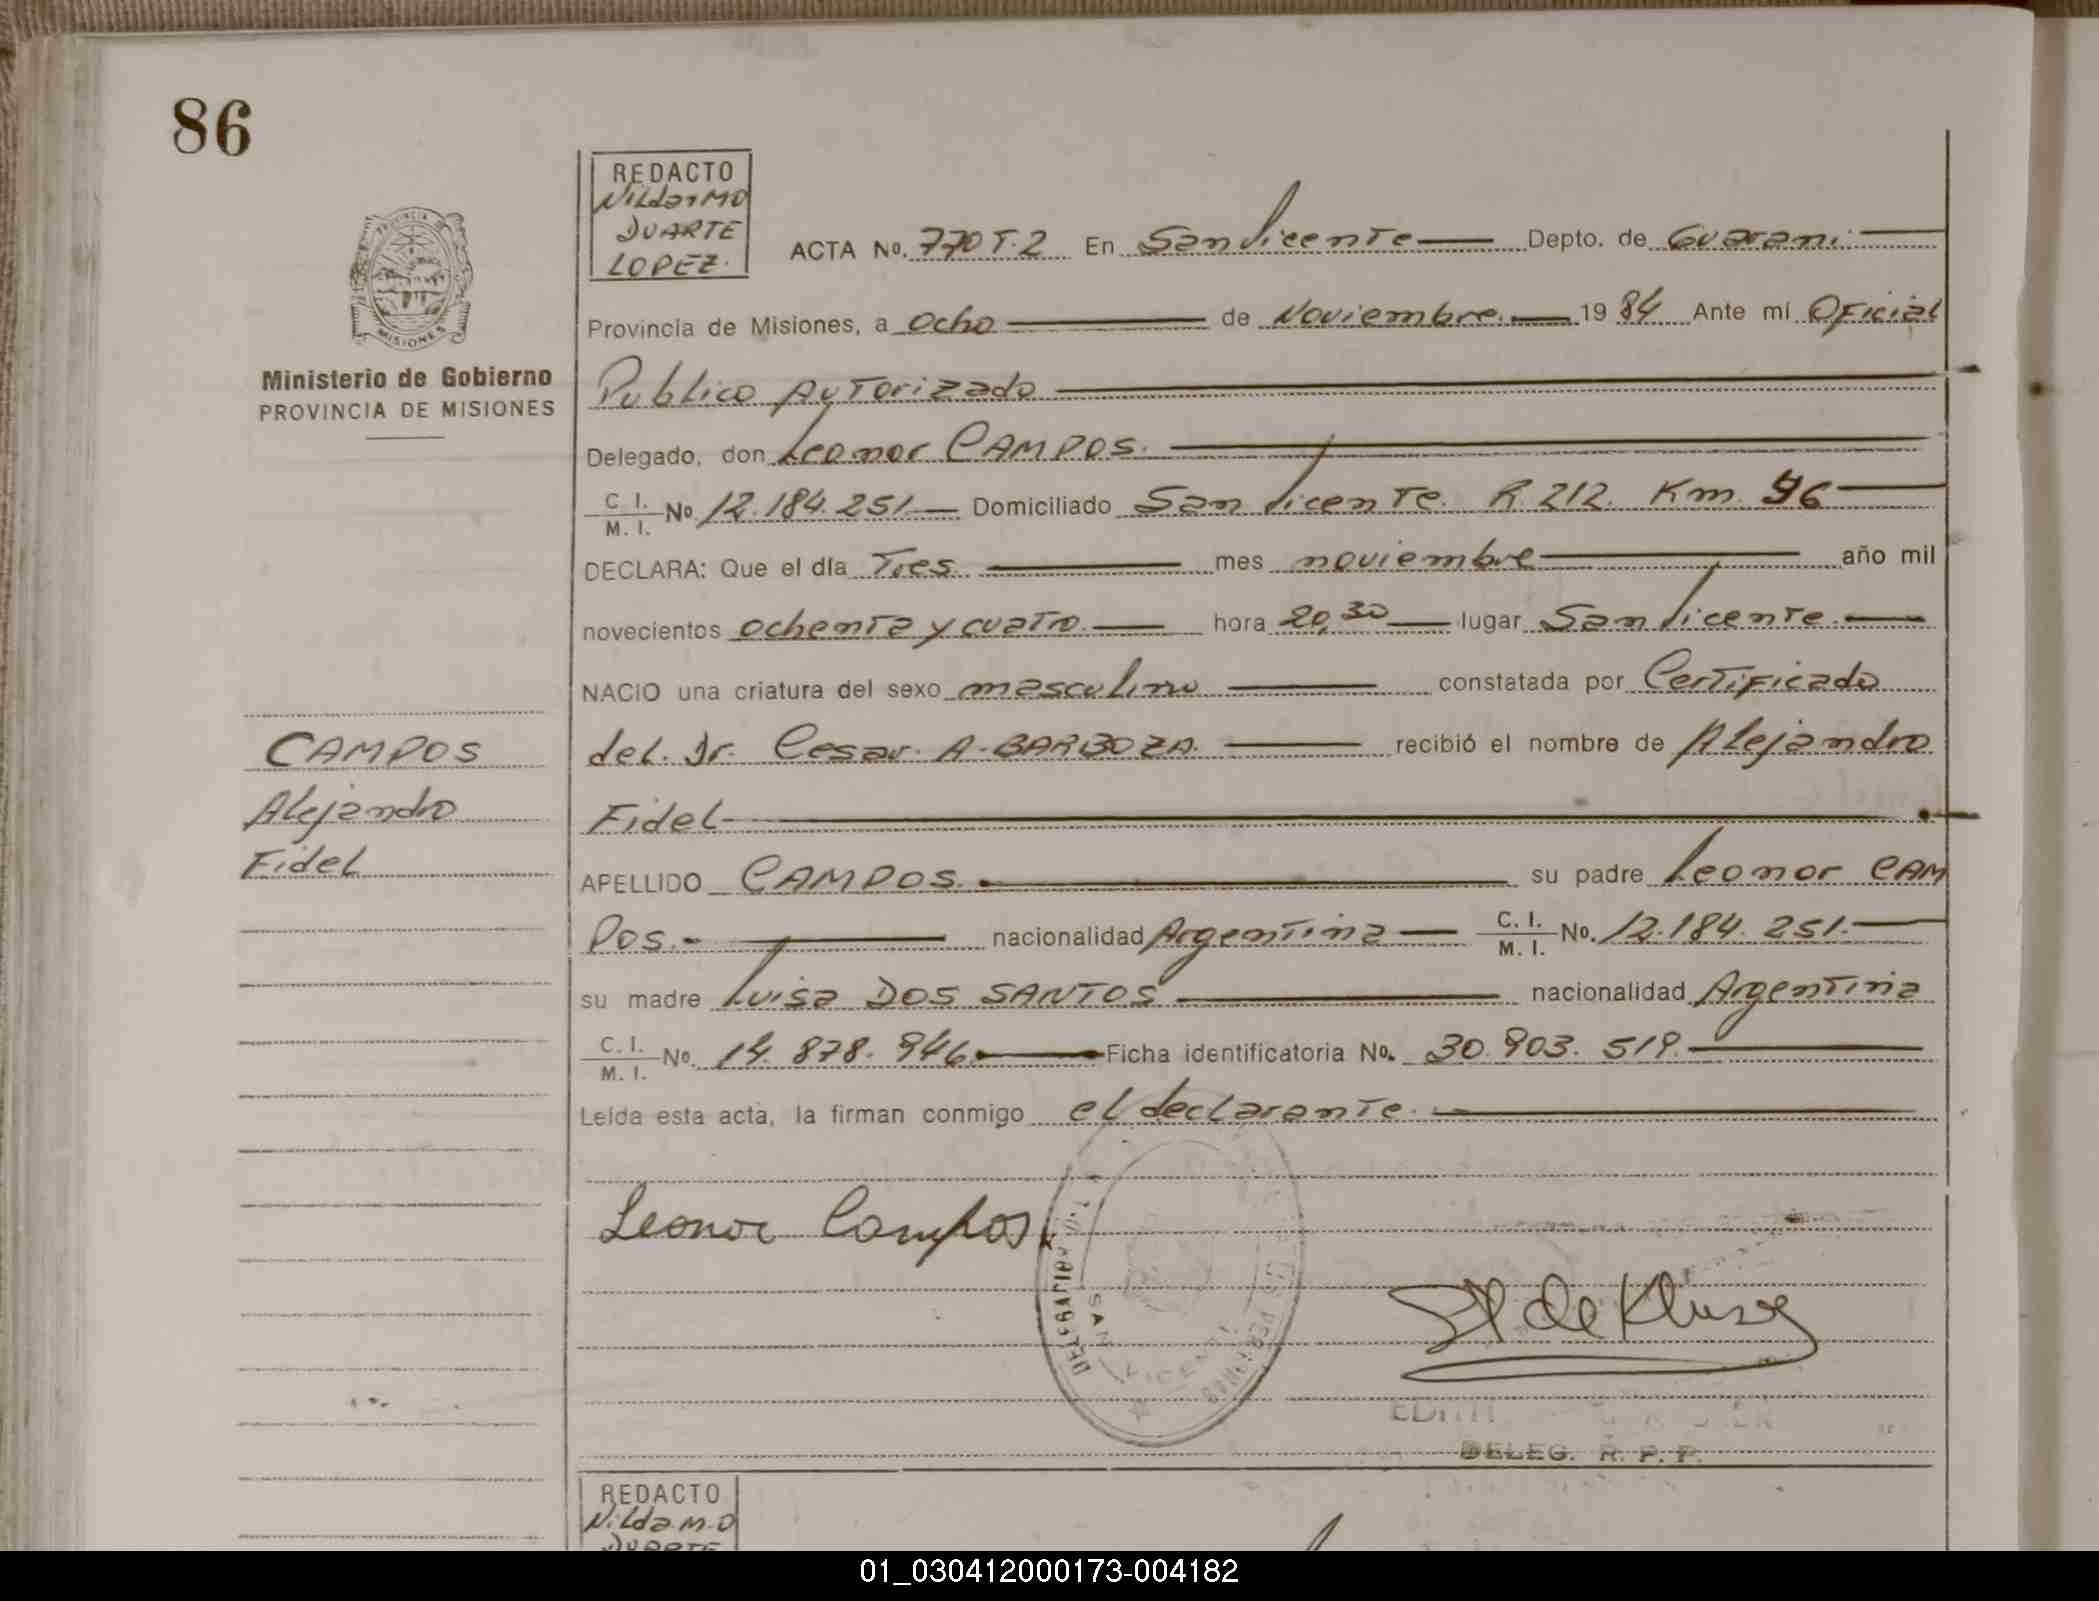 86
REDACTO
DUARTE
LOPEZ.
ACTA No. 770 T.2 En San Vicente Depto. de Guaraní
Provincia de Misiones, a Ocho de Noviembre 19 84 Ante mí Oficial
Publico Autorizado
Ministerio de Gobierno
PROVINCIA DE MISIONES
Delegado, don Leonor CAMPOS.
C. I. M. I. No. 12.184.251 Domiciliado San Vicente. R. 212. Km. 96
DECLARA: Que el día Tres mes noviembre año mil
novecientos ochenta y cuatro hora 20,30 lugar San Vicente.
NACIO una criatura del sexo masculino constatada por Certificado
del. Dr. Cesar A. BARBOZA. recibió el nombre de Alejandro
Fidel
CAMPOS
Alejandro
Fidel
APELLIDO CAMPOS. su padre Leonor CAM
POS. nacionalidad Argentina C. I. M. I. No. 12.184.251.
su madre Luisa DOS SANTOS nacionalidad Argentina
C. I. M. I. No. 14.878.946 Ficha identificatoria No. 30.903.519.
Leída esta acta, la firman conmigo el declarante.
Leonor Campos
DELEGACION
SAN VICENTE
DELEG. R. P. P.
REDACTO
Nilda M. D
DUARTE
01_030412000173-004182